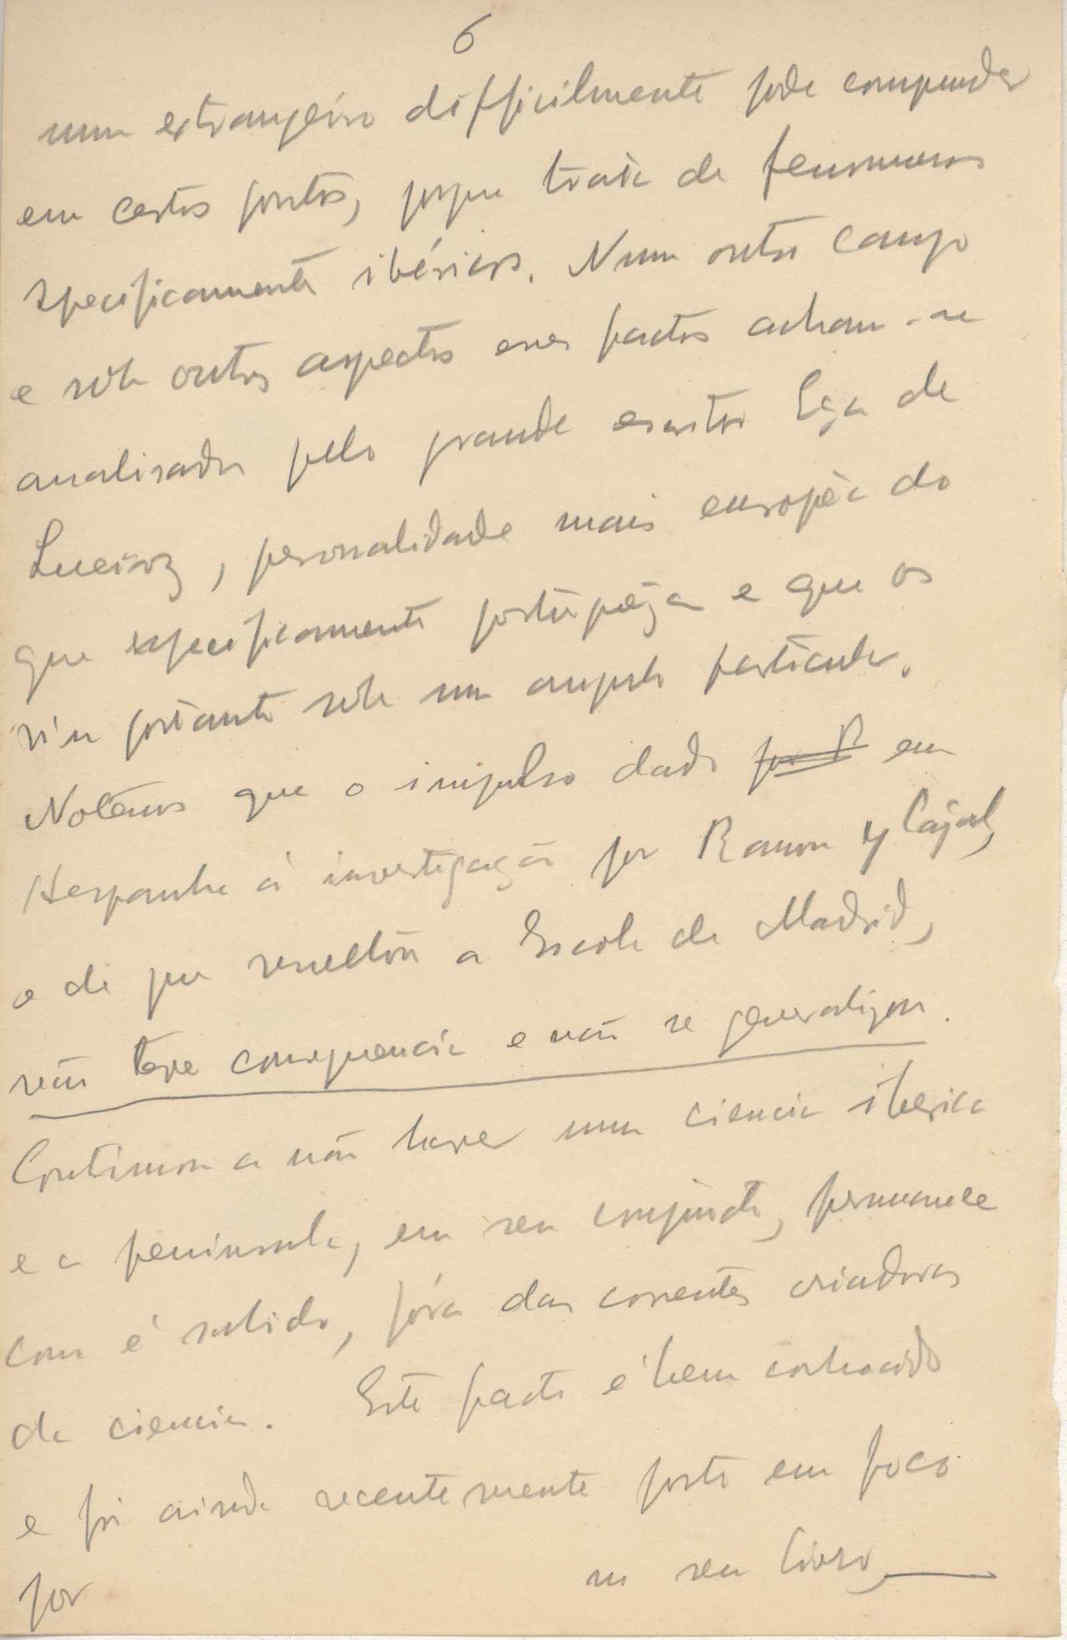 6
um extrangeiro difficilmente pode comprender
em certos pontos, porque trata de fenomenos
specificamente ibéricos. Num outro campo
e sob outros aspectos esses factos acham-se
analisados pelo grande escritor Eça de
Queiroz, personalidade mais europêa do
que especificamente portuguêza e que os
viu portanto sob um angulo particular.
Notemos que o impulso dado por R em
Hespanha á investigação por Ramon y Cajal,
e de que resultou a Escola de Madrid,
não teve consequencia e não se generalizou.
Continuou a não haver uma ciencia iberica
e a peninsula, em seu conjuncto, permanece
como é sabido, fóra das correntes criadoras
da ciencia. Este facto é bem conhecido
e foi ainda recentemente posto em foco
por no seu livro